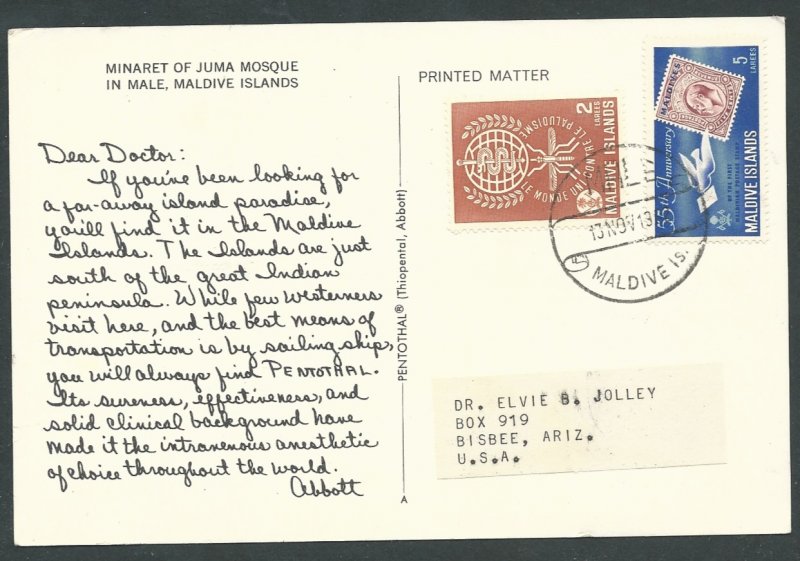 MINARET OF JUMA MOSQUE
IN MALE, MALDIVE ISLANDS
Dear Doctor:
If you've been looking for
a far-away island paradise,
you'll find it in the Maldive
Islands. The Islands are just
south of the great Indian
peninsula. While few westerners
visit here, and the best means of
transportation is by sailing ship,
you will always find PENTOTHAL.
Its sureness, effectiveness, and
solid clinical background have
made it the intravenous anesthetic
of choice throughout the world.
Abbott
PENTOTHAL® (Thiopental, Abbott)
A
PRINTED MATTER
2
LAREES
MALDIVE ISLANDS
LE MONDE UNI CONTRE LE PALUDISME
5
LAREES
MALDIVES
55th Anniversary
OF THE FIRST
MALDIVIAN POSTAGE STAMP
MALDIVE ISLANDS
13 NOV 19
MALDIVE IS.
DR. ELVIE B. JOLLEY
BOX 919
BISBEE, ARIZ.
U.S.A.